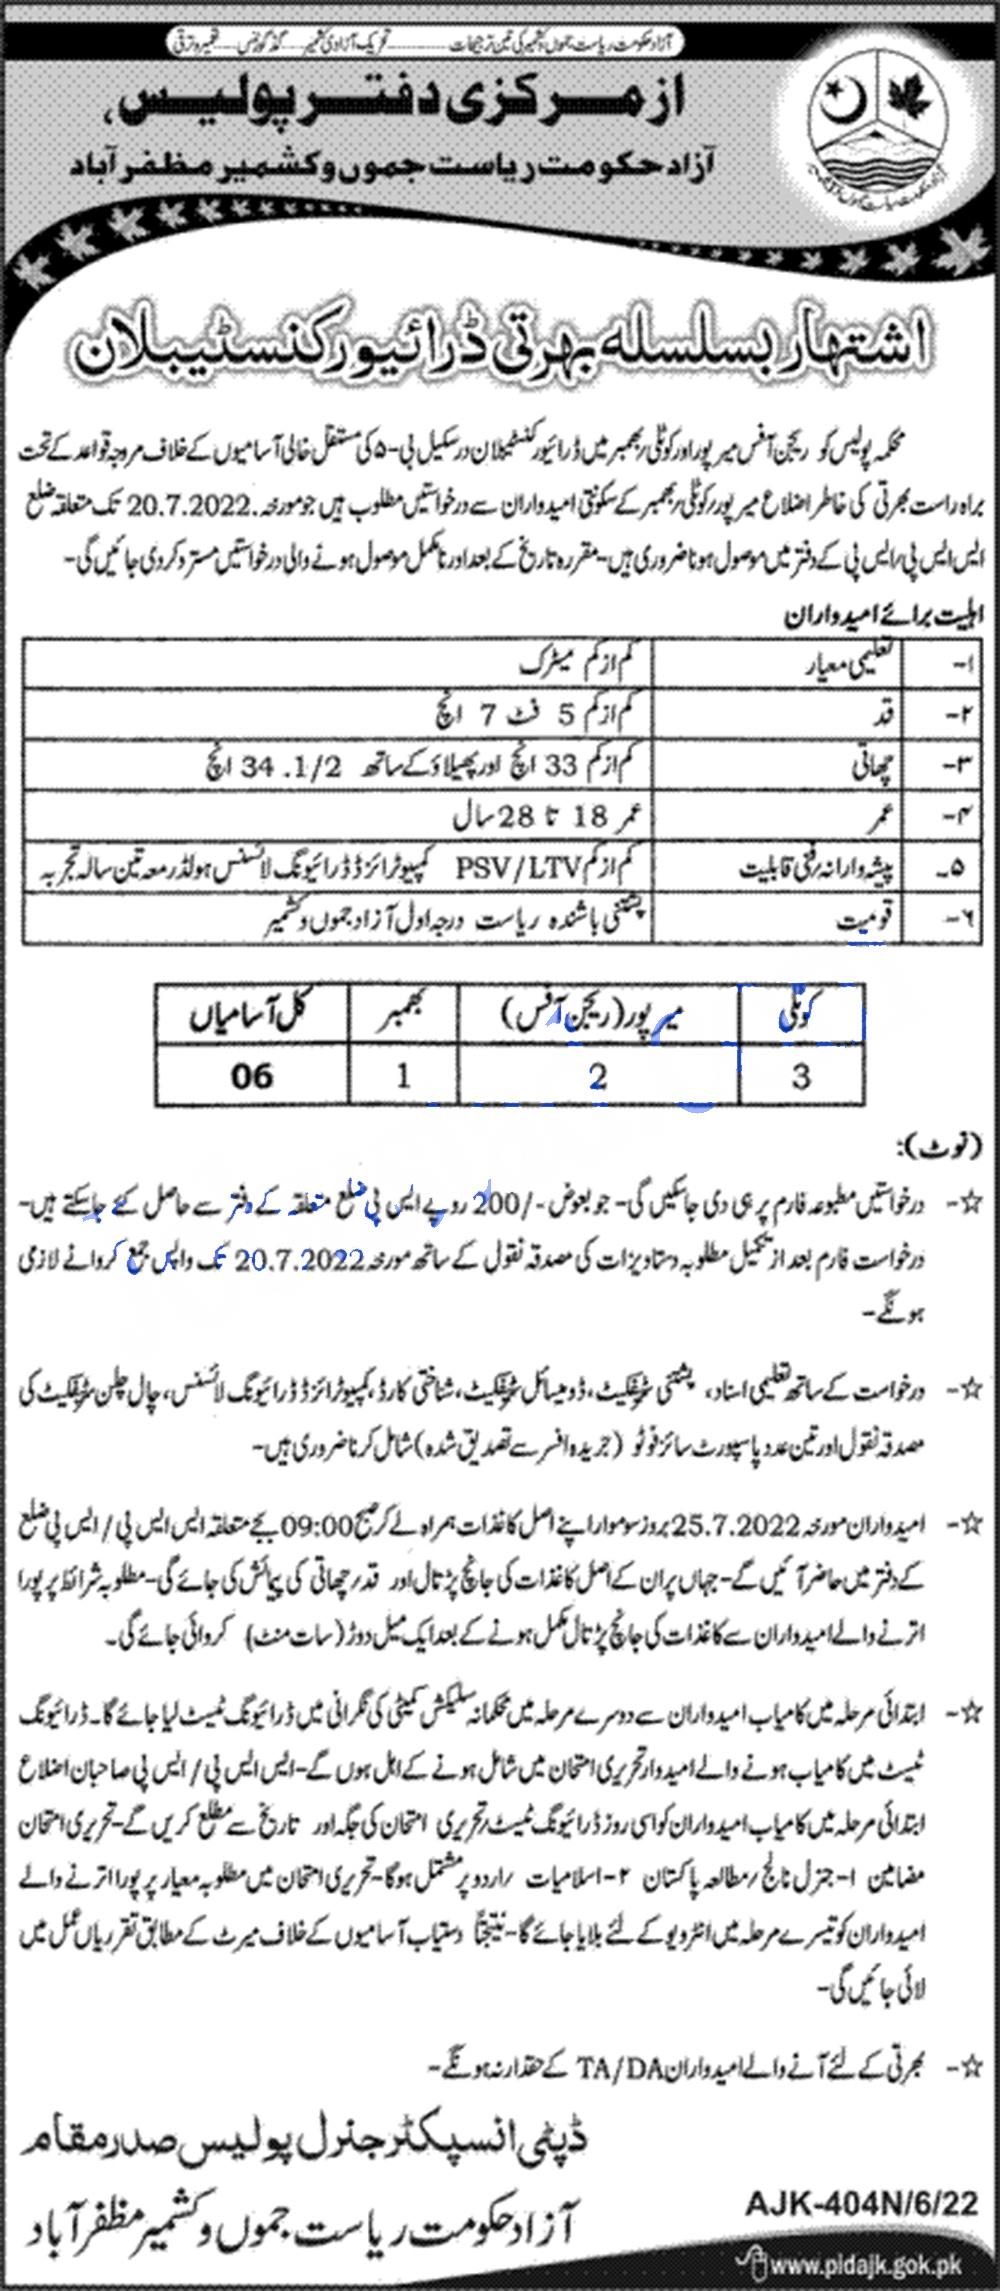 آزاد حکومت ریاست جموں و کشمیر کی تین ترجیحات ........ تحریک آزادی کشمیر ...... گڈ گورننس ...... تعمیر و ترقی
از مرکزی دفتر پولیس،
آزاد حکومت ریاست جموں و کشمیر مظفر آباد
اشتہار بسلسلہ بھرتی ڈرائیور کنسٹیبلان
محکمہ پولیس کو ریجن آفس میرپور اور کوٹلی/بھمبر میں ڈرائیور کنسٹیبلان در سکیل بی-۵ کی مستقل خالی آسامیوں کے خلاف مروجہ قواعد کے تحت
براہ راست بھرتی کی خاطر اضلاع میرپور/کوٹلی/بھمبر کے سکونتی امیدواران سے درخواستیں مطلوب ہیں جو مورخہ 20.7.2022 تک متعلقہ ضلع
ایس ایس پی/ایس پی کے دفتر میں موصول ہونا ضروری ہیں- مقررہ تاریخ کے بعد اور نامکمل موصول ہونے والی درخواستیں مسترد کر دی جائیں گی-
اہلیت برائے امیدواران
۱- تعلیمی معیار کم از کم میٹرک
۲- قد کم از کم 5 فٹ 7 انچ
۳- چھاتی کم از کم 33 انچ اور پھیلاؤ کے ساتھ 34.1/2 انچ
۴- عمر عمر 18 تا 28 سال
۵- پیشہ وارانہ/فنی قابلیت کم از کم PSV/LTV کمپیوٹرائزڈ ڈرائیونگ لائسنس ہولڈر معہ تین سالہ تجربہ
۶- قومیت پشتنی باشندہ ریاست درجہ اول آزاد جموں و کشمیر
کوٹلی میرپور (ریجن آفس) بھمبر کل آسامیاں
3 2 1 06
(نوٹ):
☆- درخواستیں مطبوعہ فارم پر ہی دی جاسکیں گی- جو بعوض -/200 روپے ایس پی ضلع متعلقہ کے دفتر سے حاصل کئے جاسکتے ہیں-
درخواست فارم بعد از تکمیل مطلوبہ دستاویزات کی مصدقہ نقول کے ساتھ مورخہ 20.7.2022 تک واپس جمع کروانے لازمی
ہونگے-
☆- درخواست کے ساتھ تعلیمی اسناد، پشتنی سرٹیفکیٹ، ڈومیسائل سرٹیفکیٹ، شناختی کارڈ، کمپیوٹرائزڈ ڈرائیونگ لائسنس، چال چلن سرٹیفکیٹ کی
مصدقہ نقول اور تین عدد پاسپورٹ سائز فوٹو (جریدہ افسر سے تصدیق شدہ) شامل کرنا ضروری ہیں-
☆- امیدواران مورخہ 25.7.2022 بروز سوموار اپنے اصل کاغذات ہمراہ لے کر صبح 09:00 بجے متعلقہ ایس ایس پی/ایس پی ضلع
کے دفتر میں حاضر آئیں گے- جہاں پر ان کے اصل کاغذات کی جانچ پڑتال اور قد/چھاتی کی پیمائش کی جائے گی- مطلوبہ شرائط پر پورا
اترنے والے امیدواران سے کاغذات کی جانچ پڑتال مکمل ہونے کے بعد ایک میل دوڑ (سات منٹ) کروائی جائے گی-
☆- ابتدائی مرحلہ میں کامیاب امیدواران سے دوسرے مرحلہ میں محکمانہ سلیکشن کمیٹی کی نگرانی میں ڈرائیونگ ٹیسٹ لیا جائے گا- ڈرائیونگ
ٹیسٹ میں کامیاب ہونے والے امیدوار تحریری امتحان میں شامل ہونے کے اہل ہوں گے- ایس ایس پی/ایس پی صاحبان اضلاع
ابتدائی مرحلہ میں کامیاب امیدواران کو اسی روز ڈرائیونگ ٹیسٹ/تحریری امتحان کی جگہ اور تاریخ سے مطلع کریں گے- تحریری امتحان
مضامین ۱- جنرل نالج/مطالعہ پاکستان ۲- اسلامیات/اردو پر مشتمل ہوگا- تحریری امتحان میں مطلوبہ معیار پر پورا اترنے والے
امیدواران کو تیسرے مرحلہ میں انٹرویو کے لئے بلایا جائے گا- نتیجتاً دستیاب آسامیوں کے خلاف میرٹ کے مطابق تقرریاں عمل میں
لائی جائیں گی-
☆- بھرتی کے لئے آنے والے امیدواران TA/DA کے حقدار نہ ہونگے-
ڈپٹی انسپکٹر جنرل پولیس صدر مقام
آزاد حکومت ریاست جموں و کشمیر مظفر آباد
AJK-404N/6/22
www.pidajk.gok.pk